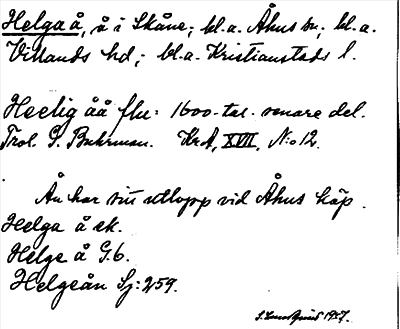 Helga å, å i Skåne; bl.a. Åhus sn; bl.a.
Villands hd; bl.a. Kristianstads l.
Heelig åå flu: 1600-tal. senare del.
Trol. G. Buhrman. KrA, XVII, N:o 12.
Ån har sitt utlopp vid Åhus köp.
Helga å ek.
Helge å G.6.
Helgeån Sj: 259.
1957.